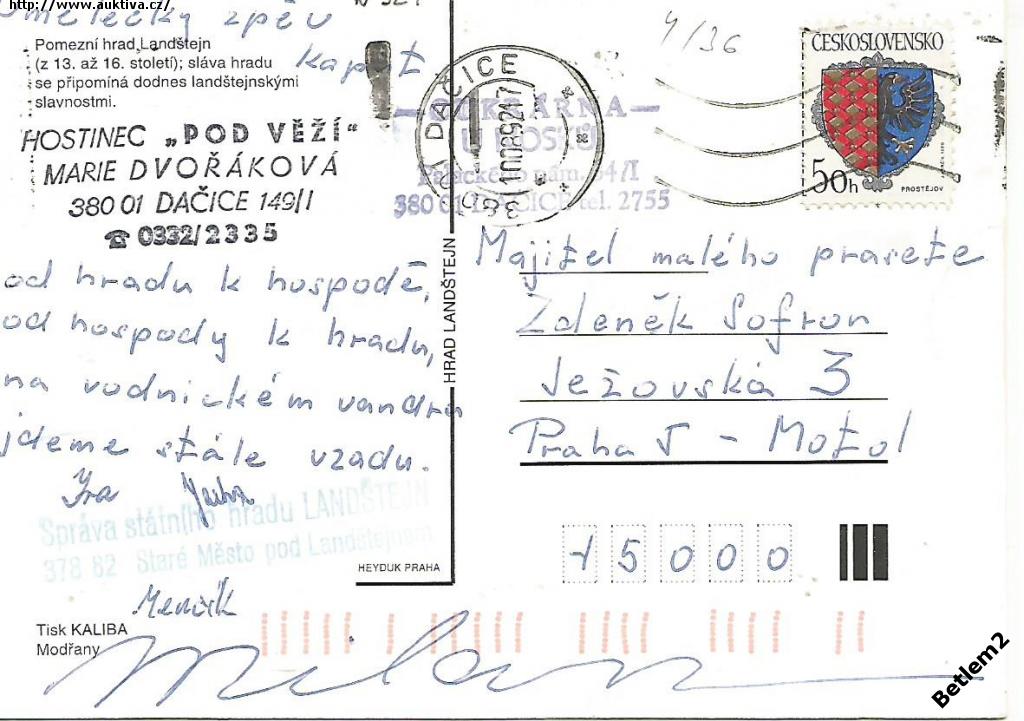 http://www.auktiva.cz/
Umělečky zpěv
kaput
Pomezní hrad Landštejn
(z 13. až 16. století); sláva hradu
se připomíná dodnes landštejnskými
slavnostmi.
HOSTINEC „POD VĚŽÍ“
MARIE DVOŘÁKOVÁ
380 01 DAČICE 149/I
☎ 0332/2335
od hradu k hospodě,
od hospody k hradu,
na vodnickém vandru
jdeme stále vzadu.
Ira
Správa státního hradu LANDŠTEJN
378 82 Staré Město pod Landštejnem
Menčík
Tisk KALIBA
Modřany
Milan
HRAD LANDŠTEJN
HEYDUK PRAHA
DAČICE
CUKRÁRNA
Palackého nám. 64/I
380 01 DAČICE tel. 2755
4/36
ČESKOSLOVENSKO
50h
PROSTĚJOV
Majitel malého prasete
Zdeněk Sofron
Ježovská 3
Praha 5 - Motol
15000
Betlem2